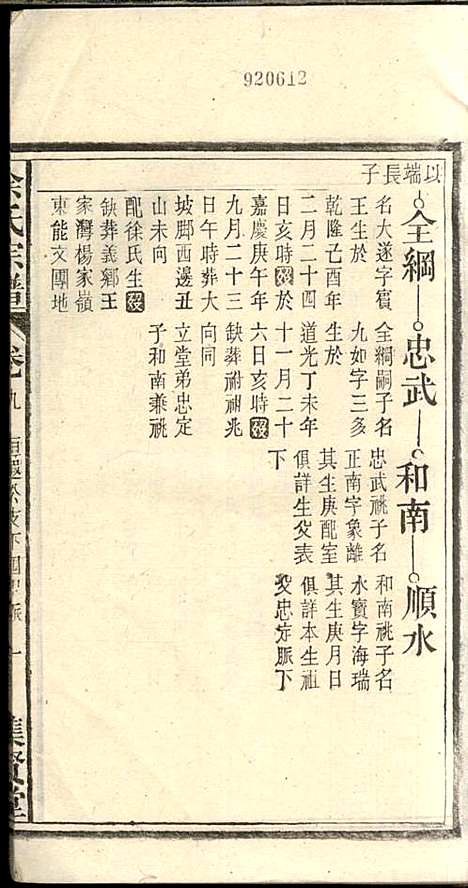 920612
以端長子
全綱
名大遂字賓
王生於
乾隆己酉年
二月二十四
日亥時歿於
嘉慶庚午年
九月二十三
日午時葬大
坡脚西邊丑
山未向
配徐氏生歿
缺葬義鄉王
家灣楊家嶺
東能文團地
忠武
全綱嗣子名
九如字三多
生於
道光丁未年
十一月二十
六日亥時歿
缺葬祔祖兆
向同
立堂弟忠定
子和南兼祧
和南
忠武祧子名
正南字象離
其生庚配室
俱詳生父表
下
順水
和南祧子名
水寶字海瑞
其生庚月日
俱詳本生祖
父忠定脈下
氏宗譜
卷九
集賢堂